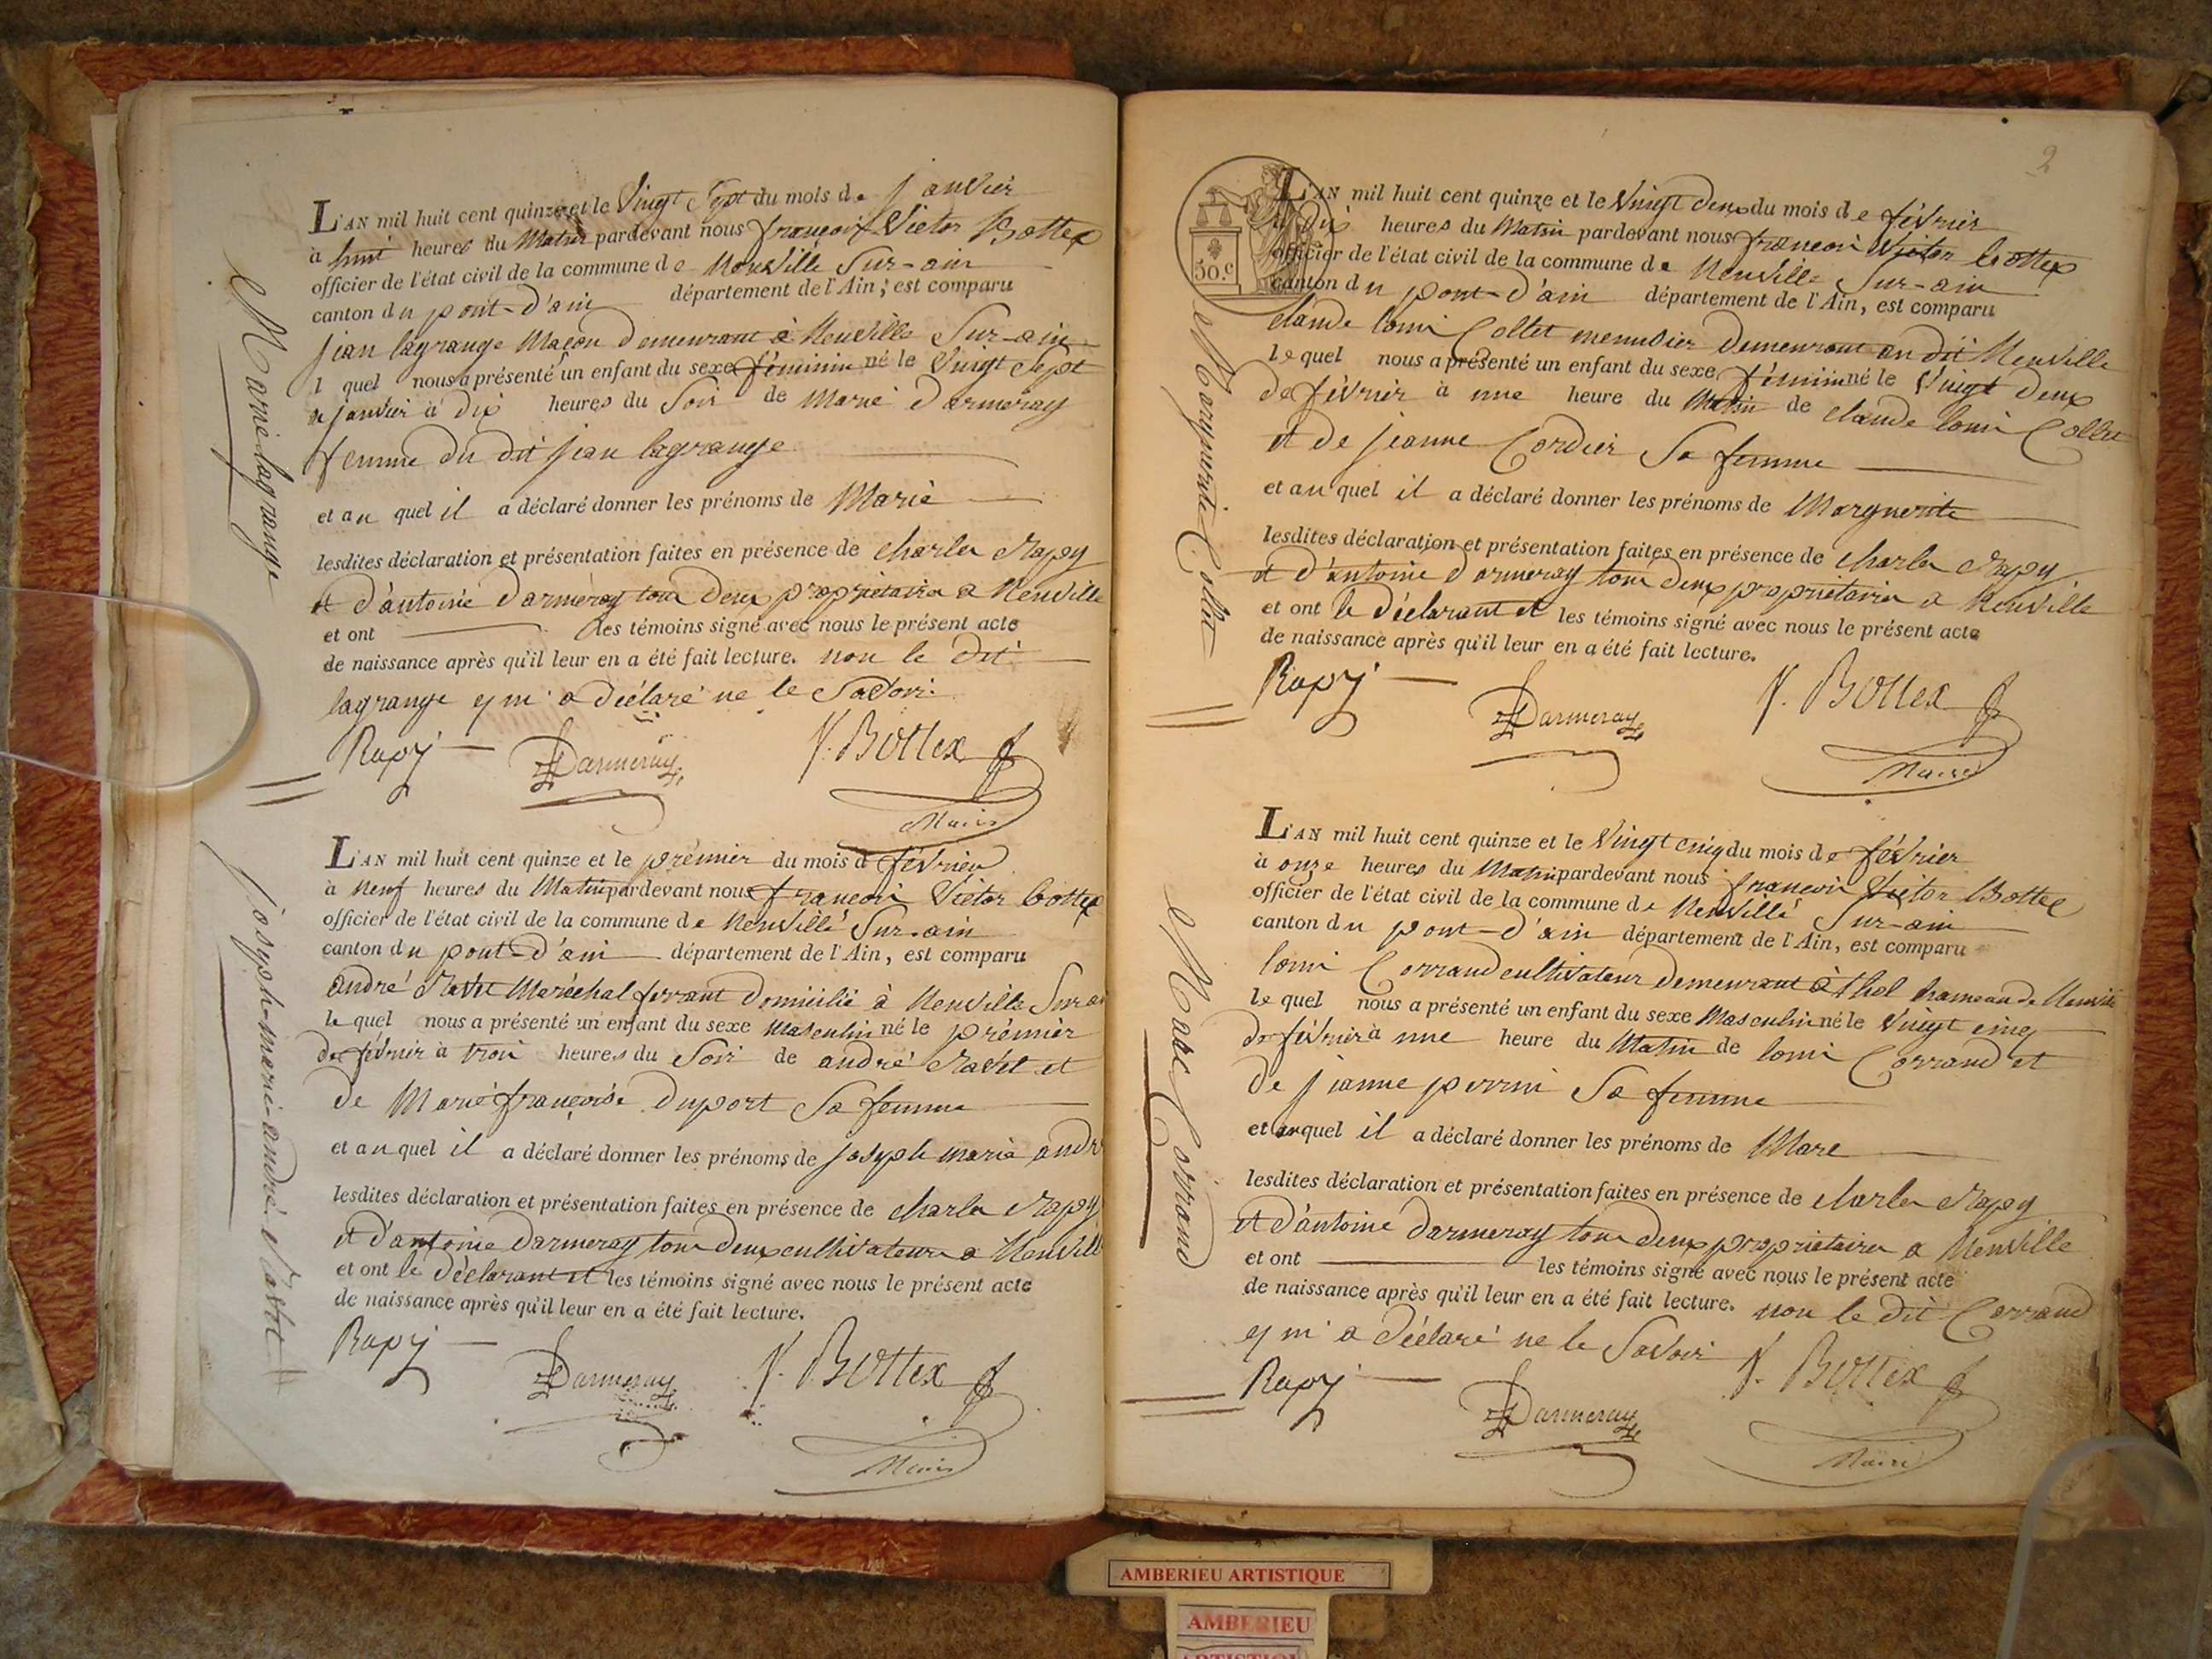 Marie lagrange
L'AN mil huit cent quinze et le Vingt Sept du mois de janvier
à huit heures du Matin pardevant nous françois Victor Bottex
officier de l'état civil de la commune de Neuville Sur-ain
canton du pont-d'ain département de l'Ain, est comparu
jean lagrange Maçon demeurant à Neuville Sur-ain
l quel nous a présenté un enfant du sexe féminin né le Vingt Sept
de janvier à dix heures du Soir de Marie Darmeray
femme du dit jean lagrange
et au quel il a déclaré donner les prénoms de Marie
lesdites déclaration et présentation faites en présence de charles Rapy
et d'antoine Darmeray tous deux propriétaires a Neuville
et ont les témoins signé avec nous le présent acte
de naissance après qu'il leur en a été fait lecture. non le dit
lagrange qui a déclaré ne le Savoir
Rapy Darmeray V. Bottex
Maire
joseph-marie-andré Ravet
L'AN mil huit cent quinze et le prémier du mois d février
à neuf heures du Matin pardevant nous françois Victor bottex
officier de l'état civil de la commune de Neuville Sur-ain
canton du pont-d'ain département de l'Ain, est comparu
andré Ravet Maréchal ferrant domicilié à Neuville Sur ai
le quel nous a présenté un enfant du sexe Masculin né le prémier
de février à trois heures du Soir de andré Ravet et
de Marie françoise Duport Sa femme
et au quel il a déclaré donner les prénoms de joseph marie andr
lesdites déclaration et présentation faites en présence de charles Rapy
et d'antoine Darmeray tous deux cultivateurs a Neuvill
et ont le déclarant et les témoins signé avec nous le présent acte
de naissance après qu'il leur en a été fait lecture.
Rapy Darmeray V. Bottex
Maire
2
50.c
Marguerite Collet
L'AN mil huit cent quinze et le Vingt deux du mois de février
à dix heures du Matin pardevant nous françois Victor bottex
officier de l'état civil de la commune de Neuville Sur-ain
canton du pont-d'ain département de l'Ain, est comparu
claude louis Collet menusier demeurant au dit Neuville
le quel nous a présenté un enfant du sexe féminin né le Vingt deux
de février à une heure du Matin de claude louis Collet
et de jeanne Cordier Sa femme
et au quel il a déclaré donner les prénoms de Marguerite
lesdites déclaration et présentation faites en présence de charles Rapy
et d'antoine darmeray tous deux propriétaires a Neuville
et ont le déclarant et les témoins signé avec nous le présent acte
de naissance après qu'il leur en a été fait lecture.
Rapy Darmeray V. Bottex
Maire
Marc Corrand
L'AN mil huit cent quinze et le Vingt cinq du mois de février
à onze heures du Matin pardevant nous françois Victor Bottex
officier de l'état civil de la commune de Neuville Sur-ain
canton du pont-d'ain département de l'Ain, est comparu
louis Corrand cultivateur demeurant à thol hameau de Neuville
le quel nous a présenté un enfant du sexe Masculin né le Vingt cinq
de février à une heure du Matin de louis Corrand et
de jeanne perrin Sa femme
et au quel il a déclaré donner les prénoms de Marc
lesdites déclaration et présentation faites en présence de charles Rapy
et d'antoine darmeray tous deux propriétaires a Neuville
et ont les témoins signé avec nous le présent acte
de naissance après qu'il leur en a été fait lecture. non le dit Corrand
qui a déclaré ne le Savoir
Rapy Darmeray V. Bottex
Maire
AMBERIEU ARTISTIQUE
AMBERIEU
ARTISTIQU